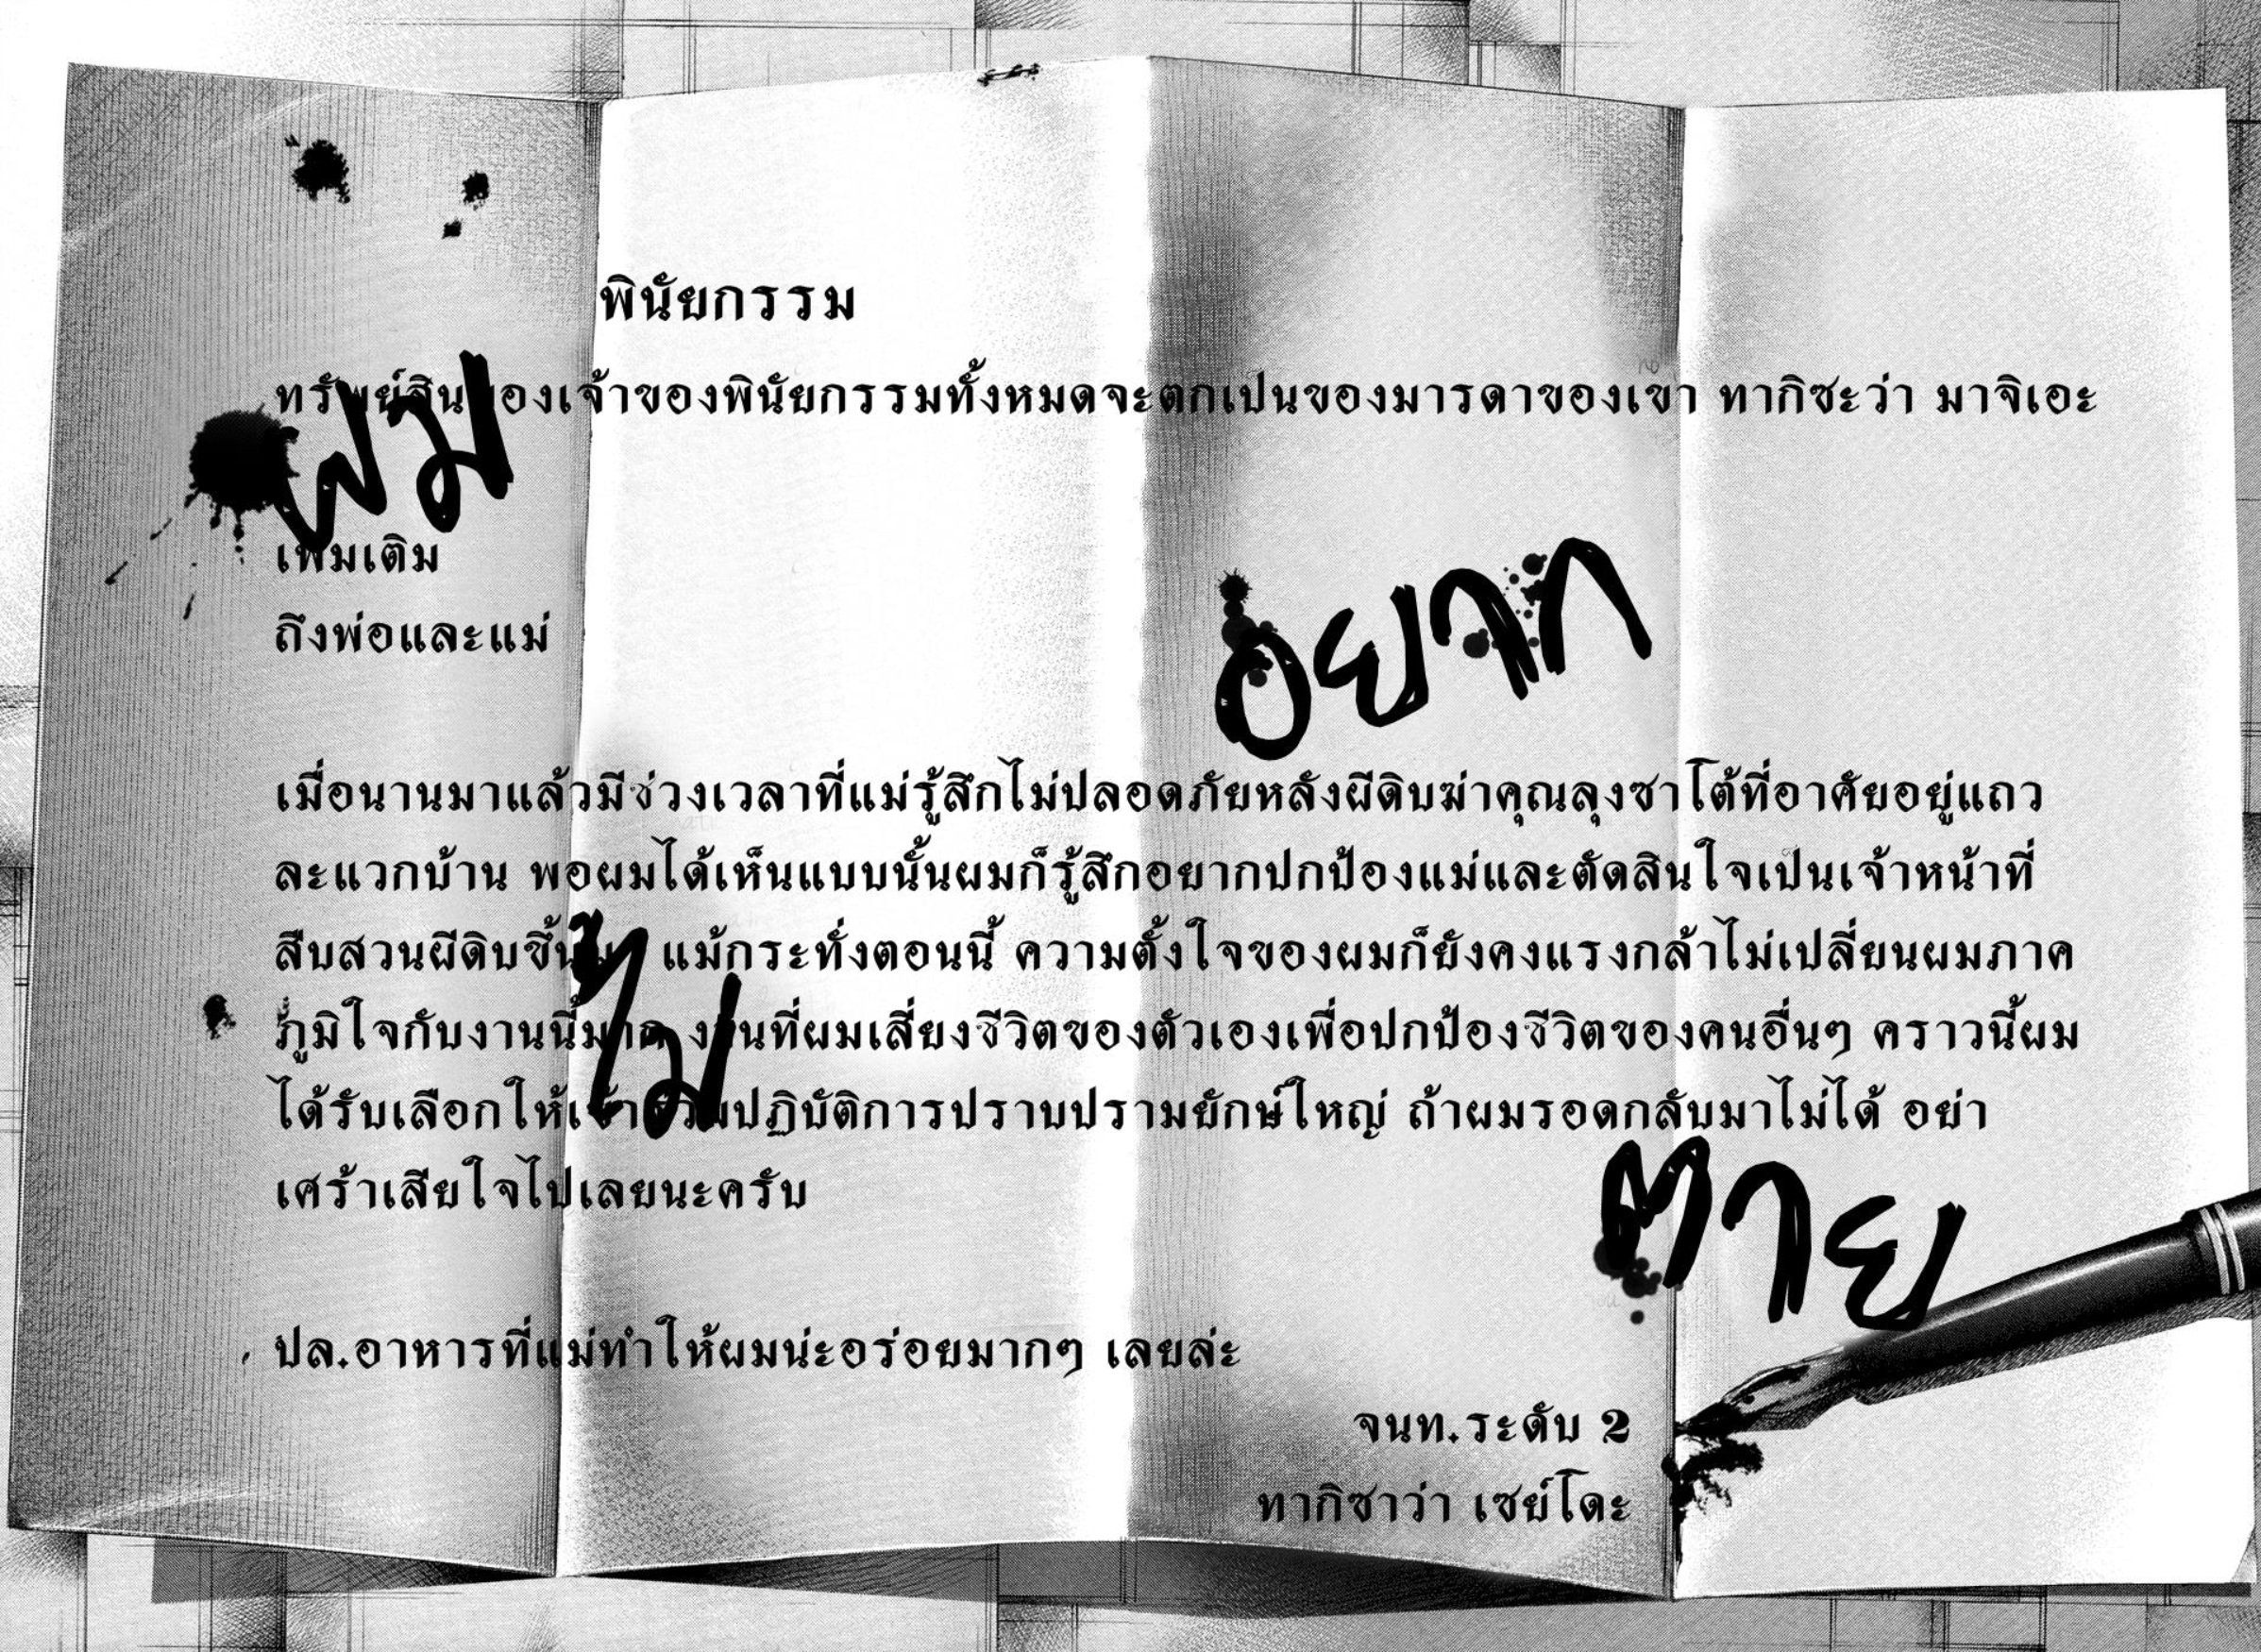 พินัยกรรม
ทรัพย์สินของเจ้าของพินัยกรรมทั้งหมดจะตกเป็นของมารดาของเขา ทากิซะว่า มาจิเอะ
ผม
เพิ่มเติม
ถึงพ่อและแม่
อยาก
เมื่อนานมาแล้วมีช่วงเวลาที่แม่รู้สึกไม่ปลอดภัยหลังผีดิบฆ่าคุณลุงซาโต้ที่อาศัยอยู่แถว
ละแวกบ้าน พอผมได้เห็นแบบนั้นผมก็รู้สึกอยากปกป้องแม่และตัดสินใจเป็นเจ้าหน้าที่
สืบสวนผีดิบขึ้นมา แม้กระทั่งตอนนี้ ความตั้งใจของผมก็ยังคงแรงกล้าไม่เปลี่ยนผมภาค
ภูมิใจกับงานนี้มาก งานที่ผมเสี่ยงชีวิตของตัวเองเพื่อปกป้องชีวิตของคนอื่นๆ คราวนี้ผม
ไม่
ได้รับเลือกให้เข้าร่วมปฏิบัติการปราบปรามยักษ์ใหญ่ ถ้าผมรอดกลับมาไม่ได้ อย่า
เศร้าเสียใจไปเลยนะครับ
ตาย
ปล.อาหารที่แม่ทำให้ผมน่ะอร่อยมากๆ เลยล่ะ
จนท.ระดับ 2
ทากิซาว่า เซย์โดะ